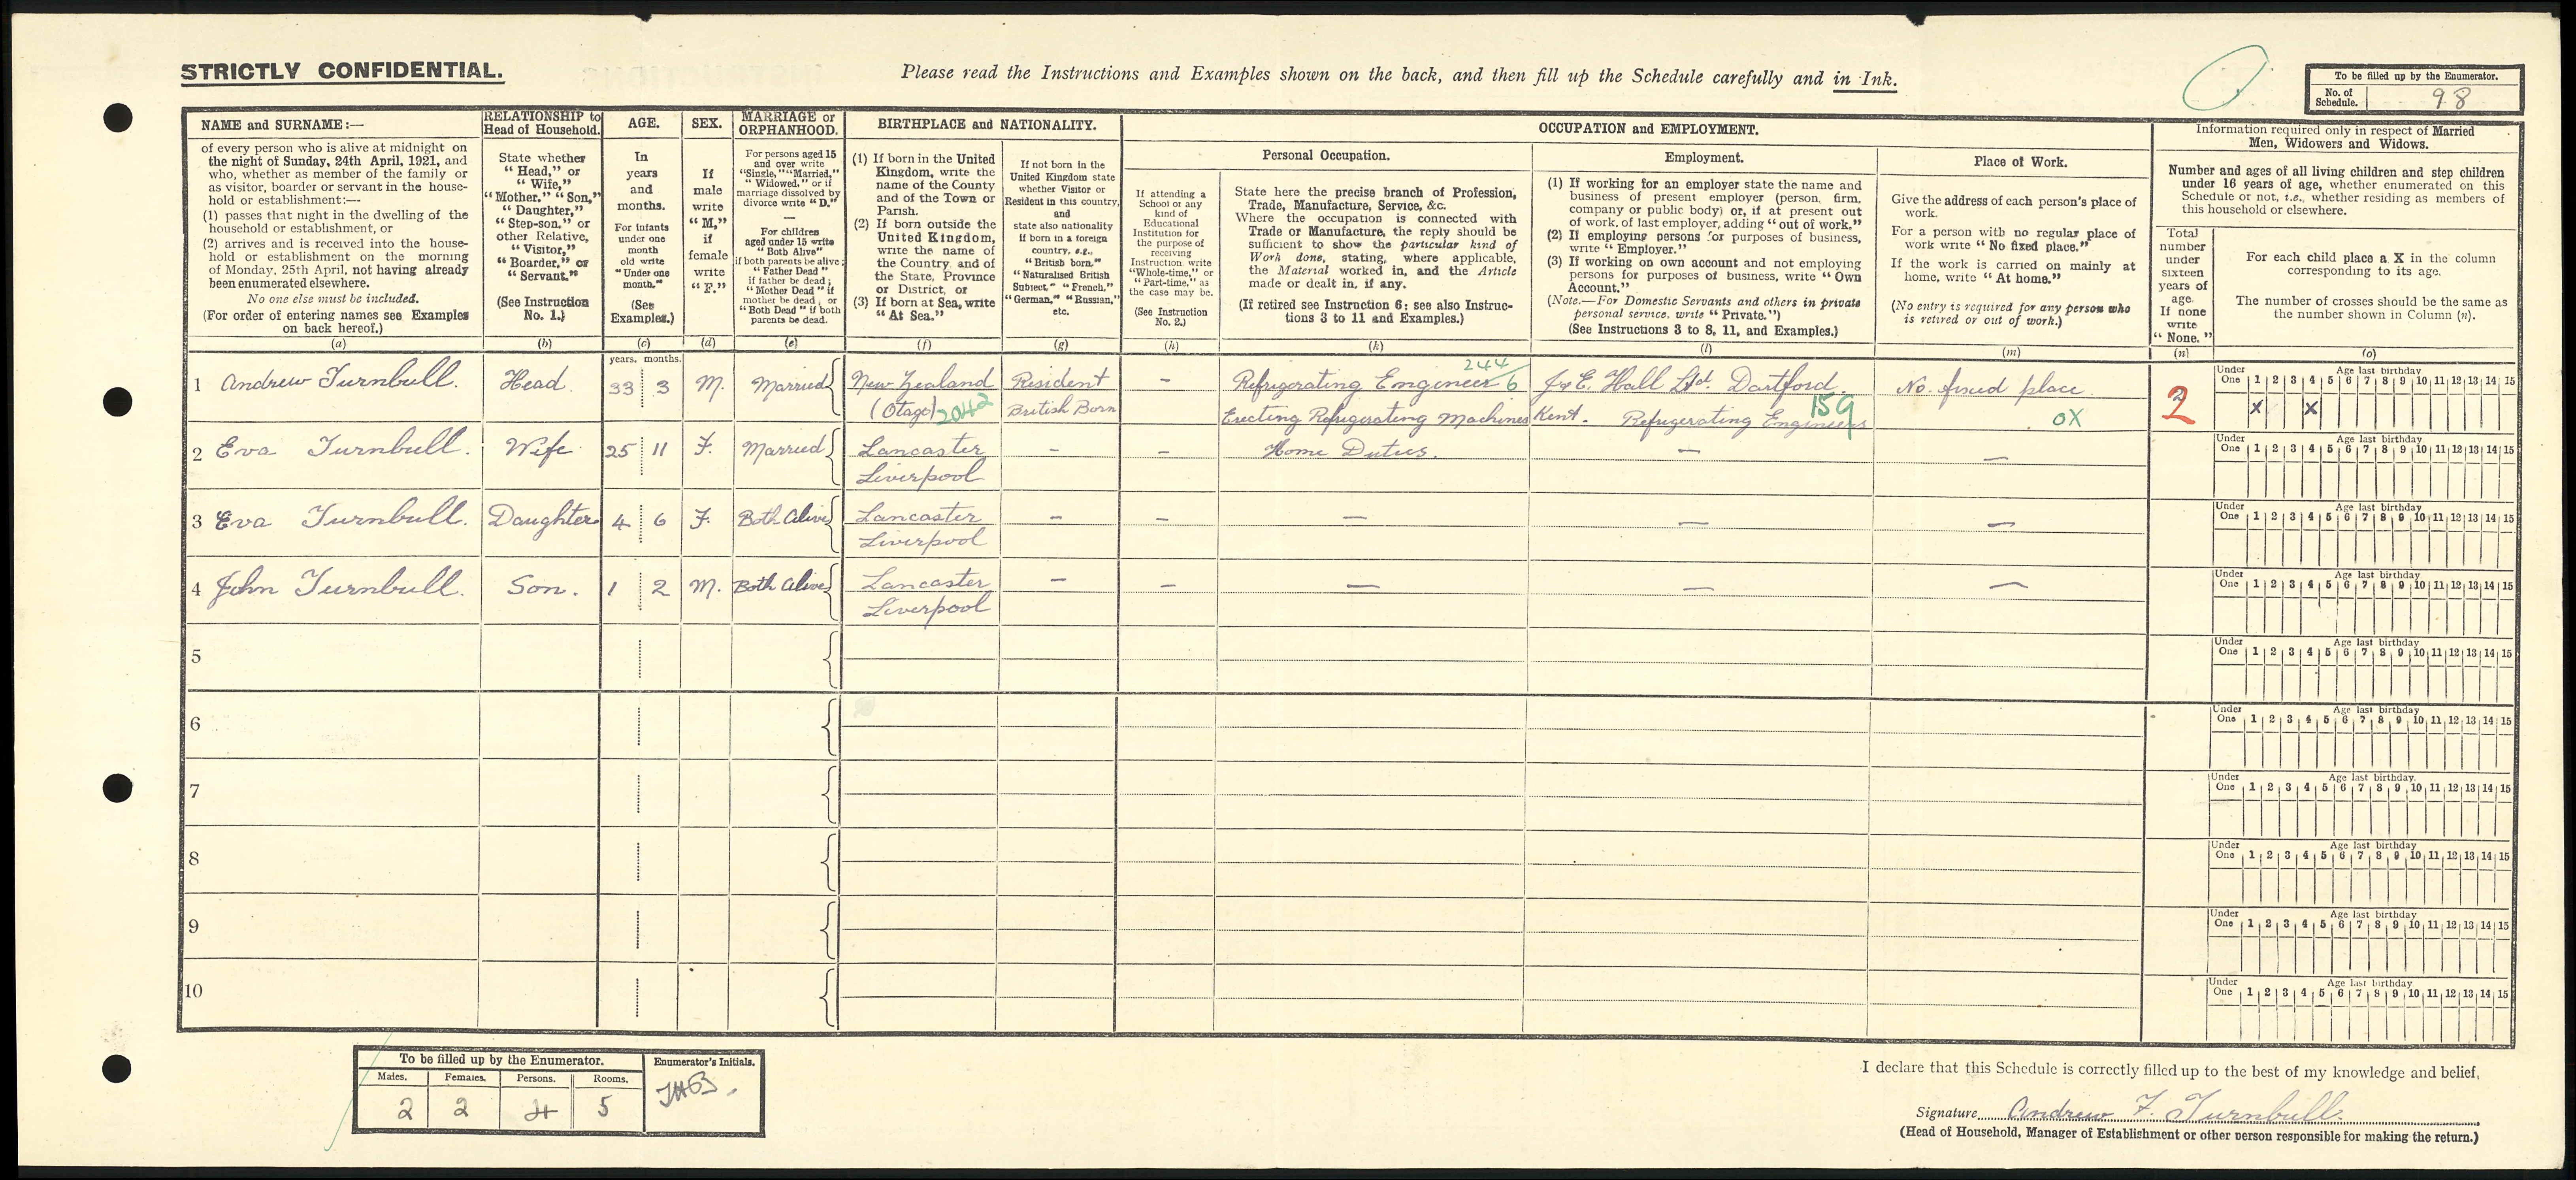 STRICTLY CONFIDENTIAL.
Please read the Instructions and Examples shown on the back, and then fill up the Schedule carefully and in Ink.
To be filled up by the Enumerator.
No. of Schedule. 98
NAME and SURNAME:—
of every person who is alive at midnight on
the night of Sunday, 24th April, 1921, and
who, whether as member of the family or
as visitor, boarder or servant in the house-
hold or establishment:—
(1) passes that night in the dwelling of the
household or establishment, or
(2) arrives and is received into the house-
hold or establishment on the morning
of Monday, 25th April, not having already
been enumerated elsewhere.
No one else must be included.
(For order of entering names see Examples
on back hereof.)
(a)
RELATIONSHIP to
Head of Household.
State whether
"Head," or
"Wife,"
"Mother," "Son,"
"Daughter,"
"Step-son," or
other Relative,
"Visitor,"
"Boarder," or
"Servant."
(See Instruction
No. 1.)
(b)
AGE.
In
years
and
months.
For infants
under one
month
old write
"Under one
month."
(See
Examples.)
(c)
SEX.
If
male
write
"M,"
if
female
write
"F."
(d)
MARRIAGE or
ORPHANHOOD.
For persons aged 15
and over write
"Single," "Married,"
"Widowed," or if
marriage dissolved by
divorce write "D."
—
For children
aged under 15 write
"Both Alive"
if both parents be alive;
"Father Dead"
if father be dead;
"Mother Dead" if
mother be dead; or
"Both Dead" if both
parents be dead.
(e)
BIRTHPLACE and NATIONALITY.
(1) If born in the United
Kingdom, write the
name of the County
and of the Town or
Parish.
(2) If born outside the
United Kingdom,
write the name of
the Country, and of
the State, Province
or District, or
(3) If born at Sea, write
"At Sea."
(f)
If not born in the
United Kingdom state
whether Visitor or
Resident in this country,
and
state also nationality
if born in a foreign
country, e.g.,
"British born."
"Naturalised British
Subject." "French,"
"German," "Russian,"
etc.
(g)
OCCUPATION and EMPLOYMENT.
Personal Occupation.
If attending a
School or any
kind of
Educational
Institution for
the purpose of
receiving
Instruction, write
"Whole-time," or
"Part-time," as
the case may be.
(See Instruction
No. 2.)
(h)
State here the precise branch of Profession,
Trade, Manufacture, Service, &c.
Where the occupation is connected with
Trade or Manufacture, the reply should be
sufficient to show the particular kind of
Work done, stating, where applicable,
the Material worked in, and the Article
made or dealt in, if any.
(If retired see Instruction 6; see also Instruc-
tions 3 to 11 and Examples.)
(k)
Employment.
(1) If working for an employer state the name and
business of present employer (person, firm,
company or public body) or, if at present out
of work, of last employer, adding "out of work."
(2) If employing persons for purposes of business,
write "Employer."
(3) If working on own account and not employing
persons for purposes of business, write "Own
Account."
(Note.—For Domestic Servants and others in private
personal service, write "Private.")
(See Instructions 3 to 8, 11, and Examples.)
(l)
Place of Work.
Give the address of each person's place of
work.
For a person with no regular place of
work write "No fixed place."
If the work is carried on mainly at
home, write "At home."
(No entry is required for any person who
is retired or out of work.)
(m)
Information required only in respect of Married
Men, Widowers and Widows.
Number and ages of all living children and step children
under 16 years of age, whether enumerated on this
Schedule or not, i.e., whether residing as members of
this household or elsewhere.
Total
number
under
sixteen
years of
age.
If none
write
"None."
(n)
For each child place a X in the column
corresponding to its age.
The number of crosses should be the same as
the number shown in Column (n).
(o)
years. months.
244/6
1 Andrew Turnbull. Head. 33 3 M. Married New Zealand Resident - Refrigerating Engineer J & E. Hall Ltd. Dartford. No fixed place 2
(Otago) 2042 British Born Erecting Refrigerating Machines Kent. Refrigerating Engineers 159 OX
Under One 1 2 3 4 5 6 7 8 9 10 11 12 13 14 15
Age last birthday
X X
2 Eva Turnbull. Wife 25 11 F. Married Lancaster - - Home Duties. - -
Liverpool
Under One 1 2 3 4 5 6 7 8 9 10 11 12 13 14 15
Age last birthday
3 Eva Turnbull. Daughter 4 6 F. Both Alive Lancaster - - - - -
Liverpool
Under One 1 2 3 4 5 6 7 8 9 10 11 12 13 14 15
Age last birthday
4 John Turnbull. Son. 1 2 M. Both Alive Lancaster - - - - -
Liverpool
Under One 1 2 3 4 5 6 7 8 9 10 11 12 13 14 15
Age last birthday
5
Under One 1 2 3 4 5 6 7 8 9 10 11 12 13 14 15
Age last birthday
6
Under One 1 2 3 4 5 6 7 8 9 10 11 12 13 14 15
Age last birthday
7
Under One 1 2 3 4 5 6 7 8 9 10 11 12 13 14 15
Age last birthday.
8
Under One 1 2 3 4 5 6 7 8 9 10 11 12 13 14 15
Age last birthday
9
Under One 1 2 3 4 5 6 7 8 9 10 11 12 13 14 15
Age last birthday
10
Under One 1 2 3 4 5 6 7 8 9 10 11 12 13 14 15
Age last birthday
To be filled up by the Enumerator.
Males. Females. Persons. Rooms.
2 2 4 5
Enumerator's Initials.
I declare that this Schedule is correctly filled up to the best of my knowledge and belief,
Signature Andrew F. Turnbull.
(Head of Household, Manager of Establishment or other person responsible for making the return.)